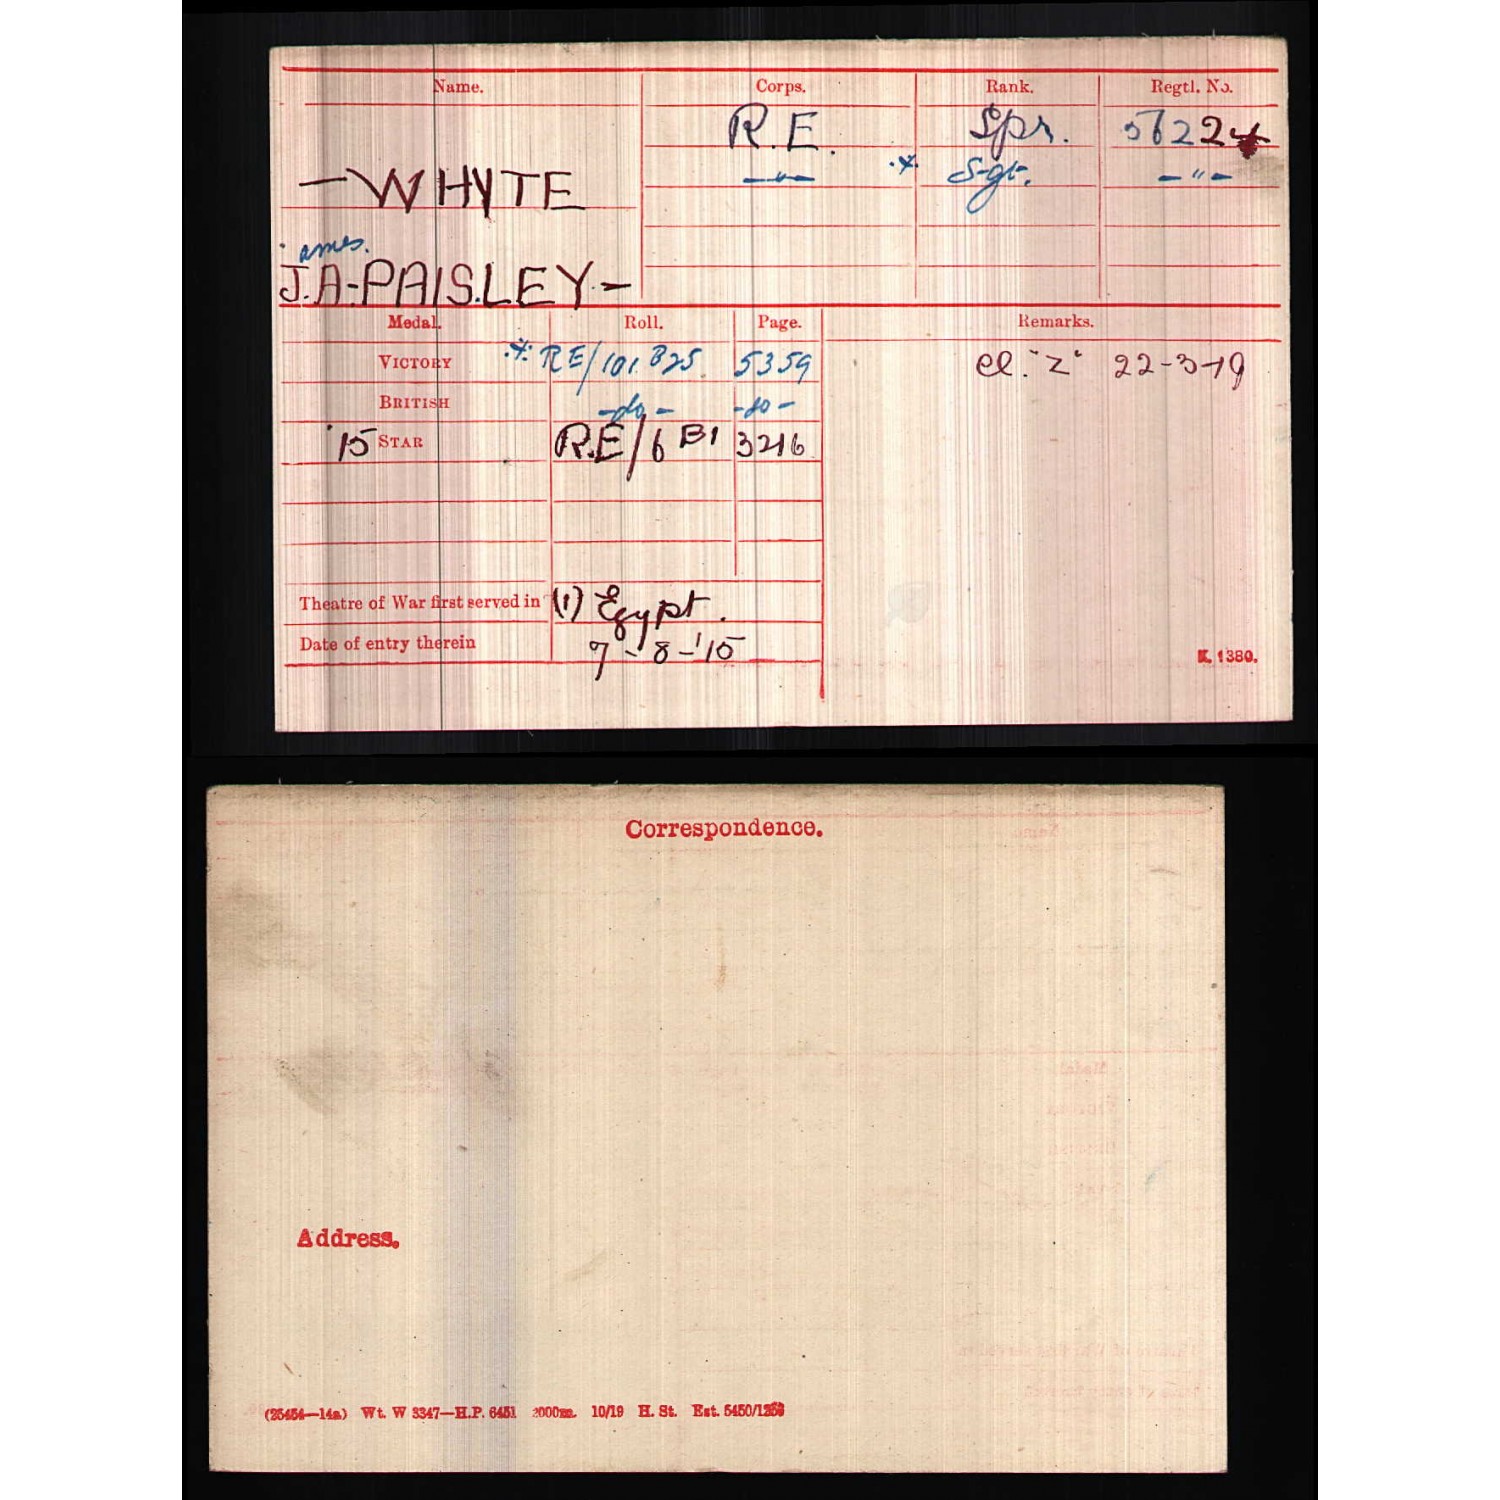 Name. Corps. Rank. Regtl. No.
R.E. Spr. 56224
— WHYTE —"— .x. Sgt. —"—
ames.
J.A-PAISLEY.—
Medal. Roll. Page. Remarks.
VICTORY .x. RE/101 B25. 5359 Cl. "Z" 22-3-19
BRITISH -do- -do-
'15 STAR R.E/6 B1 3216
Theatre of War first served in (1) Egypt.
Date of entry therein 7-8-'15
K. 1380.
Correspondence.
Address.
(25454—14a) Wt. W 3347—H.P. 6451 2000m. 10/19 H. St. Est. 5450/1253